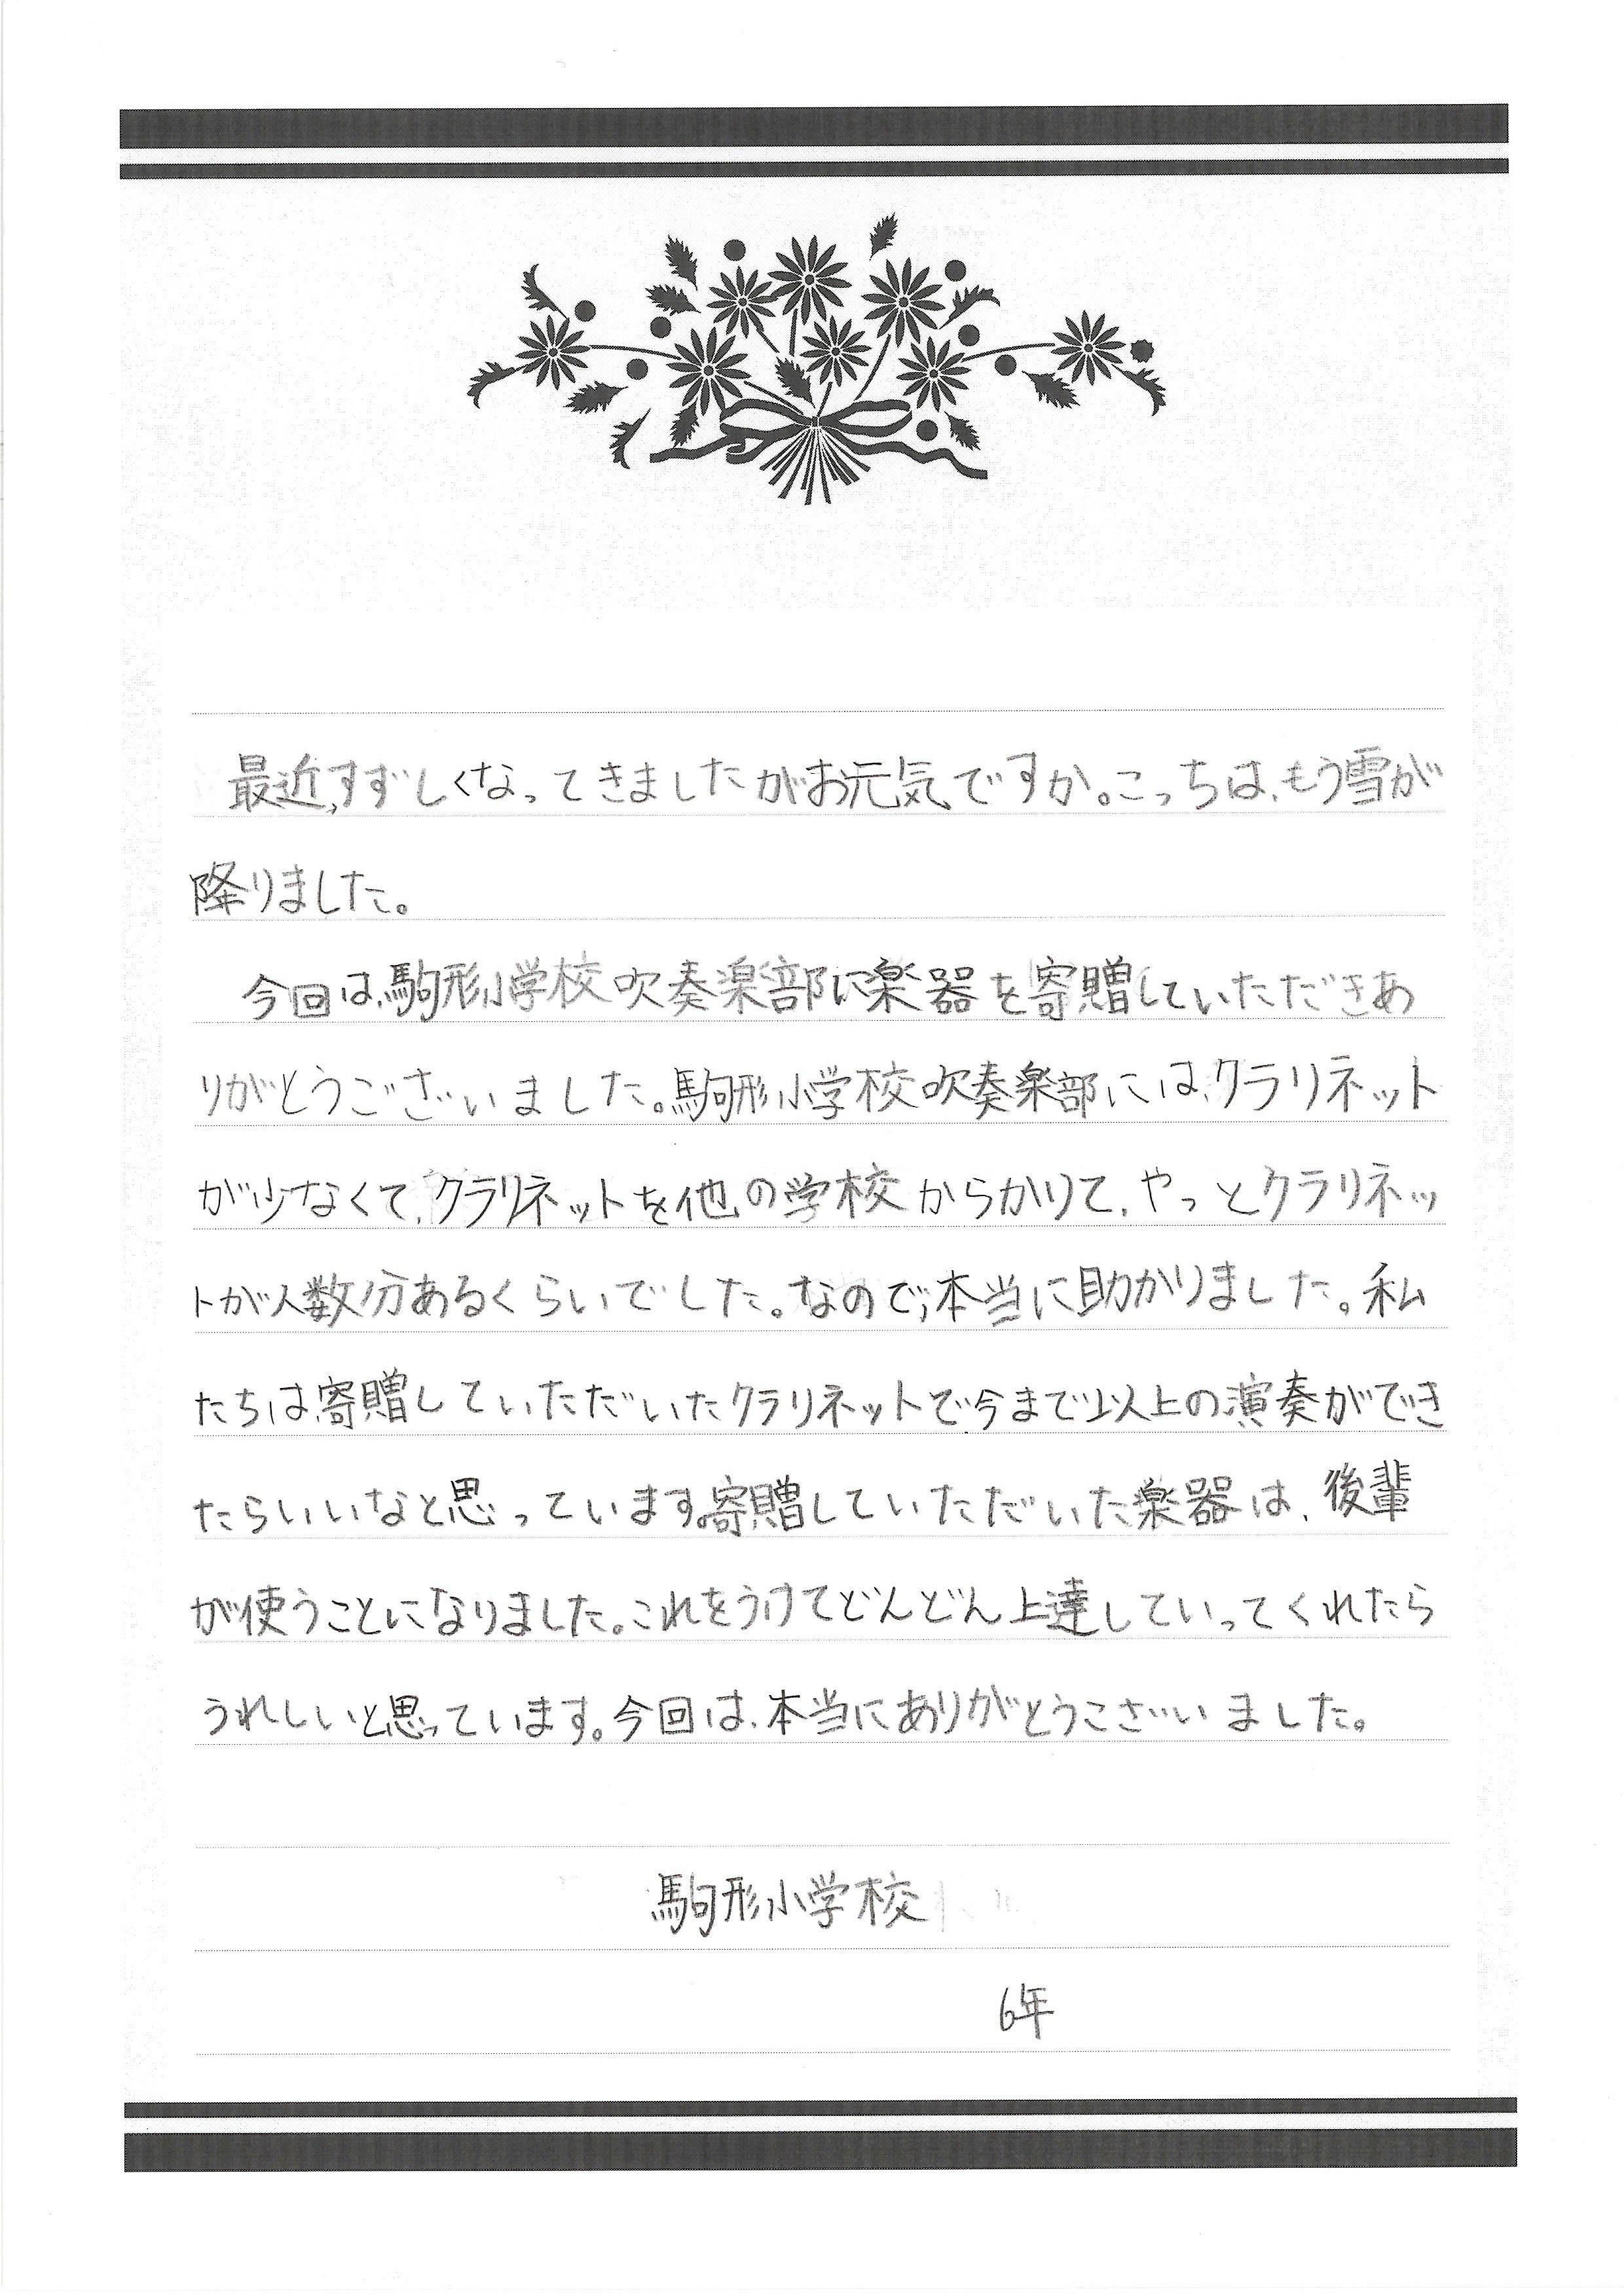 最近、すずしくなってきましたがお元気ですか。こっちは、もう雪が
降りました。
今回は、駒形小学校吹奏楽部に楽器を寄贈していただきあ
りがとうございました。駒形小学校吹奏楽部には、クラリネット
が少なくて、クラリネットを他の学校からかりて、やっとクラリネッ
トが人数分あるくらいでした。なので、本当に助かりました。私
たちは、寄贈していただいたクラリネットで今まで以上の演奏ができ
たらいいなと思っています。寄贈していただいた楽器は、後輩
が使うことになりました。これをうけてどんどん上達していってくれたら
うれしいと思っています。今回は、本当にありがとうこざいました。
駒形小学校
6年